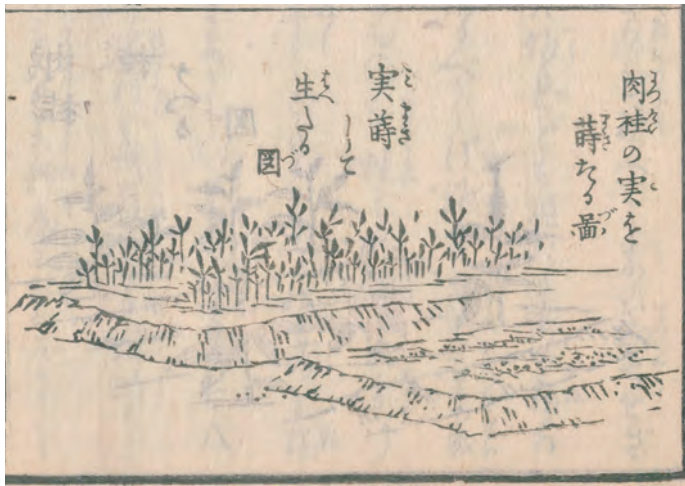 肉桂の実を
蒔たる図
実蒔
して
生たる
図